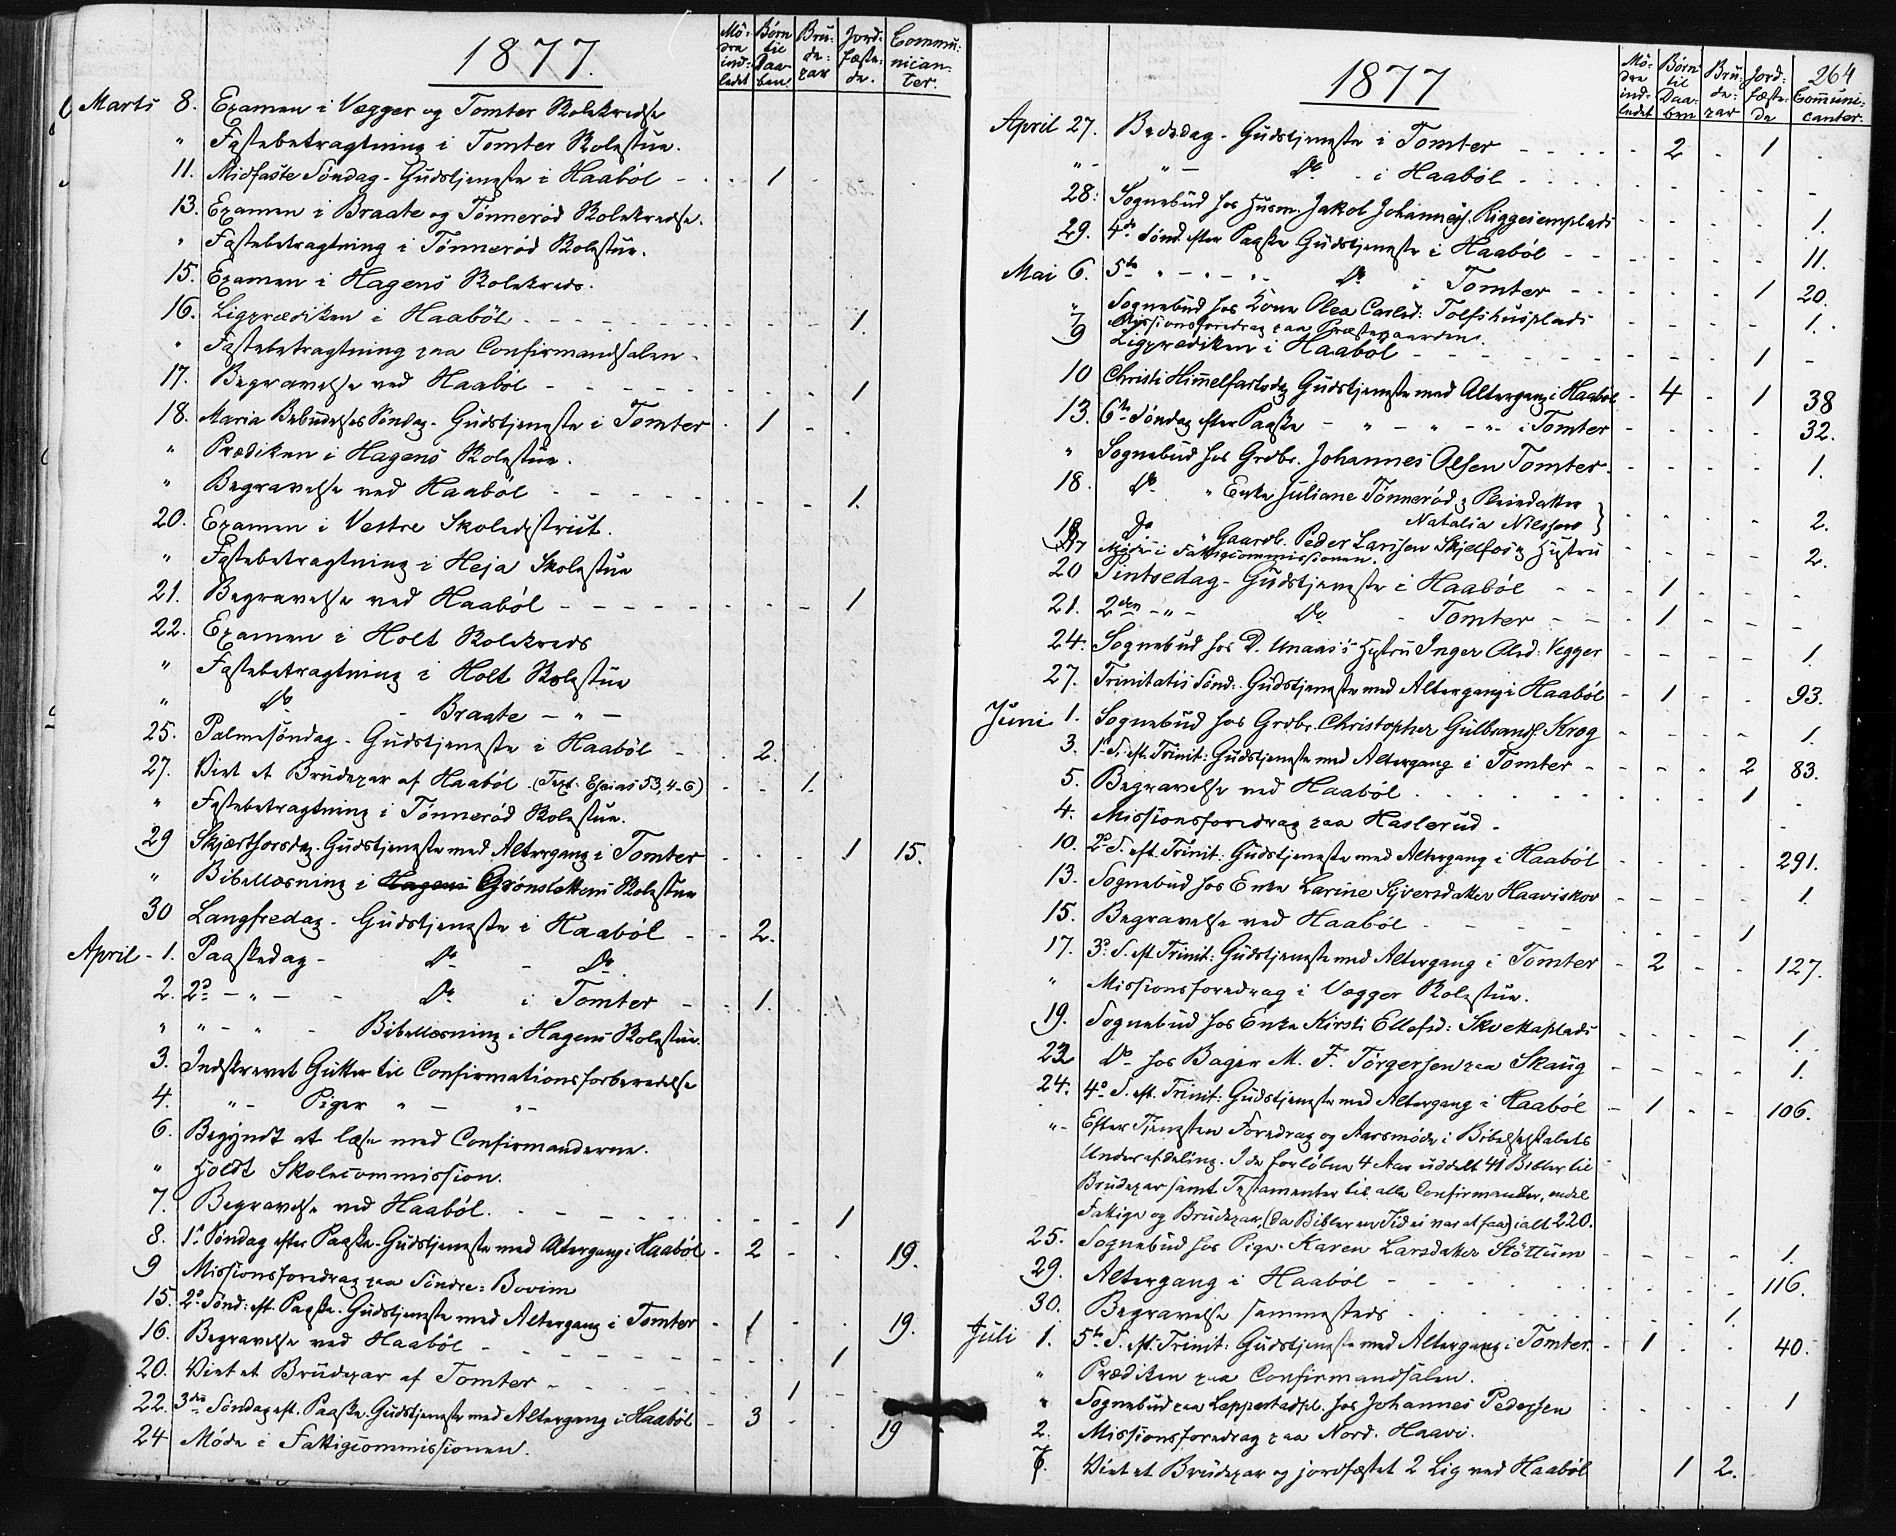 1877.
Mö-dre ind-ledet
Børn til Daa-ben
Bru-de-par
Jord-fæste-de.
Commu-nican-ter.
Marts 8. Examen i Vægger og Tomter Skolekredse
" Fastebetragtning i Tomter Skolestue.
11. Midfaste Søndag - Gudstjeneste i Haaböl - 1
13. Examen i Braate og Tønnerød Skolekredse.
" Fastebetragtning i Tønnerød Skolestue.
15. Examen i Hagens Skolekreds.
16. Ligprædiken i Haaböl - 1.
" Fastebetragtning paa Confirmandsalen.
17. Begravelse ved Haaböl - 1
18. Maria Bebudelses Søndag - Gudstjeneste i Tomter - 1
" Prædiken i Hagens Skolestue.
" Begravelse ved Haaböl - 1.
20. Examen i Vestre Skoledistrict.
" Fastebetragtning i Heja Skolestue
21. Begravelse ved Haaböl - 1
22. Examen i Holt Skolekreds
" Fastebetragtning i Holt Skolestue
" Do - Braate - " -
25. Palmesöndag - Gudstjeneste i Haaböl - 2.
27. Viet et Brudepar af Haaböl. (Text. Esaias 53, 4-6) - 1.
" Fastebetragtning i Tønnerød Skolestue.
29 Skjærthorsdag. Gudstjeneste med Altergang i Tomter - 1 15.
" Bibellæsning i Hagens Grønslettens Skolestue
30 Langfredag - Gudstjeneste i Haaböl - 2.
April - 1. Paaskedag - Do - Do.
2. 2d - " - - Do. i Tomter - 1.
" " - " - Bibellæsning i Hagens Skolestue.
3. Indskrevet Gutter til Confirmationsforberedelse
4. " - Piger " - " -
6. Begyndt at læse med Confirmanderne.
" Holdt Skolecommission.
7. Begravelse ved Haaböl. - 1
8. 1s Søndag efter Paaske - Gudstjeneste med Altergang i Haaböl - 2 - - 19.
9 Missionsforedrag paa Söndre-Bovim
15. 2d Sönd: eft. Paaske. Gudstjeneste med Altergang i Tomter - 1 19.
16. Begravelse ved Haaböl - 1
20. Viet et Brudepar af Tomter - 1
22. 3die Søndag eft. Paaske. Gudstjeneste med Altergang i Haaböl - 3 19
24 Møde i Fattigcommissionen.
1877
264
Mö-dre ind-ledet
Børn til Daa-ben
Bru-de-par
Jord-fæste-de
Communi-canter.
April 27. Bededag - Gudstjeneste i Tomter - 2 - 1
" - " - Do - i Haaböl
28. Sognebud hos Husm. Jakob Johannes. Riggesemplads - 1.
29. 4de Sönd. efter Paaske Gudstjeneste i Haaböl - 11.
Mai 6. 5te " - " - " - Do i Tomter - 1 20.
" Sognebud hos Kone Olea Carlsd: Tolfshusplads - 1.
7 Missionsforedrag paa Præstegaarden.
9 Ligprædiken i Haaböl - 1 -
10 Christi Himmelfartsdag Gudstjeneste med Altergang i Haaböl - 4 - 1 38
13. 6te Søndag efter Paaske - " - " - " - i Tomter - 32.
" Sognebud hos Grdbr. Johannes Olsen Tomter. - 1.
18. Do " Enke Juliane Tønnerød & Pleiedatter
Natalia Nilssen } 2.
19 Do " Gaardb. Peder Larssen Skjelfos & Hustru - 2.
17 Møde i Fattigcommissionen.
20 Pintsedag - Gudstjeneste i Haaböl - 1
21. 2den - " - Do - Tomter - 1
24. Sognebud hos D. Unaas's Hustru Inger Olsd: Vegger - 1.
27. Trinitatis Sönd: Gudstjeneste med Altergang i Haaböl - 1 - 93.
Juni 1. Sognebud hos Grdbr. Christopher Gulbrands. Krog - 1.
3. 1s S. eft. Trinit: Gudstjeneste med Altergang i Tomter - 2 83.
5. Begravelse ved Haaböl - 1
4. Missionsforedrag paa Haslerud.
10. 2d S. eft. Trinit: Gudstjeneste med Altergang i Haaböl - 291.
13. Sognebud hos Enke Larine Syversdatter Haaviskov - 1.
15. Begravelse ved Haaböl - 1
17. 3d S. eft Trinit: Gudstjeneste med Altergang i Tomter - 2 - - 127.
" Missionsforedrag i Vægger Skolestue.
19. Sognebud hos Enke Kirsti Ellefsd: Skotteplads - 1.
22 Do hos Bager M. F. Torgersen paa Skaug - 1.
24. 4d S. eft. Trinit: Gudstjeneste med Altergang i Haaböl - 1 - - 106.
" - Efter Tjenesten Foredrag og Aarsmøde i Bibelselskabets
Underafdeling. I de forløbne 4 Aar uddelt 41 Bibler til
Brudepar samt Testamenter til alle Confirmanter, endel
Fattige og Brudepar, (da Bibler en Tid ei var at faa) ialt 220.
25. Sognebud hos Pige Karen Larsdatter Støttum - 1.
29. Altergang i Haaböl - 116.
30. Begravelse sammesteds - 1.
Juli 1. 5te S. eft. Trinit: Gudstjeneste med Altergang i Tomter. - 1 - - 40.
" Prædiken paa Confirmandsalen.
" Sognebud paa Leppestadpl. hos Johannes Pedersen - 1
2. Missionsforedrag paa Nord. Haavi.
7. Viet et Brudepar og jordfæstet 2 Lig ved Haaböl 1 2.